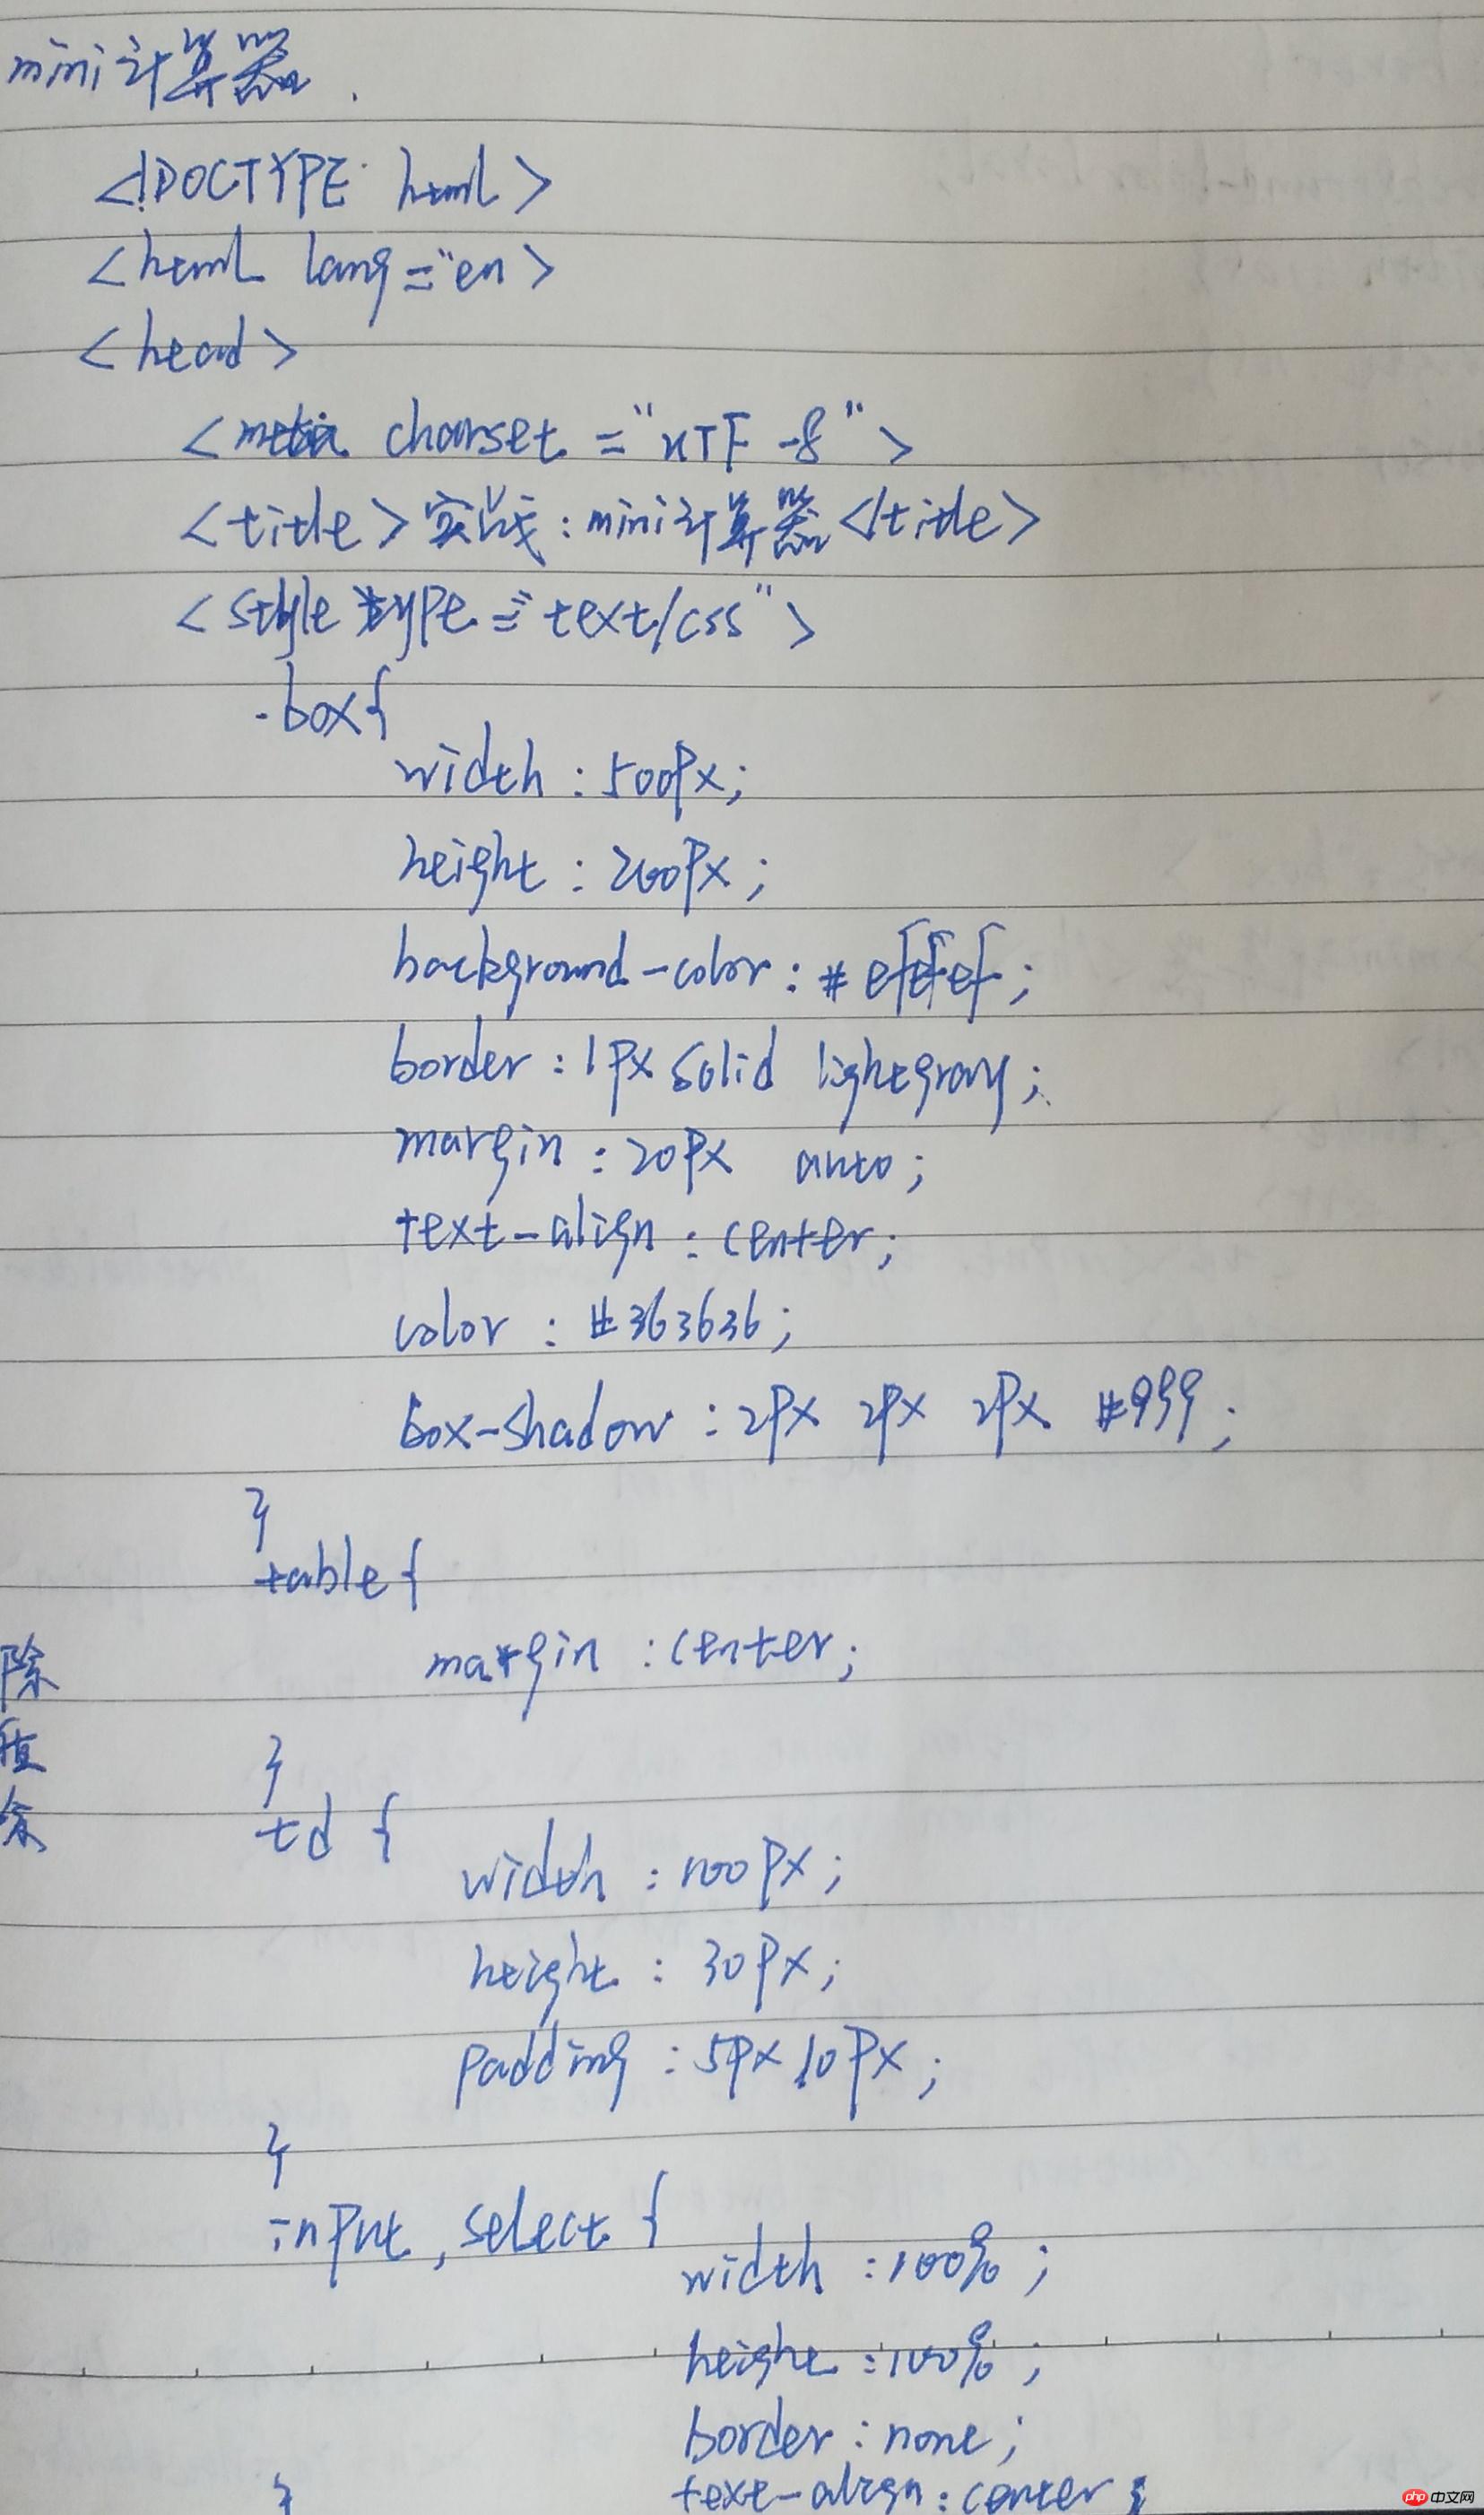 mini计算器.
<!DOCTYPE html>
<html lang="en>
<head>
<meta charset="UTF-8">
<title>实战:mini计算器</title>
<style type="text/css">
.box{
width:500px;
height:200px;
background-color:#efefef;
border:1px solid lightgray;
margin:20px auto;
text-align:center;
color:#363636;
box-shadow:2px 2px 2px #999;
}
table{
margin:center;
}
td{
width:100px;
height:30px;
padding:5px 10px;
}
input,select{
width:100%;
height:100%;
border:none;
text-align:center;
}
除
值
余
php中文网